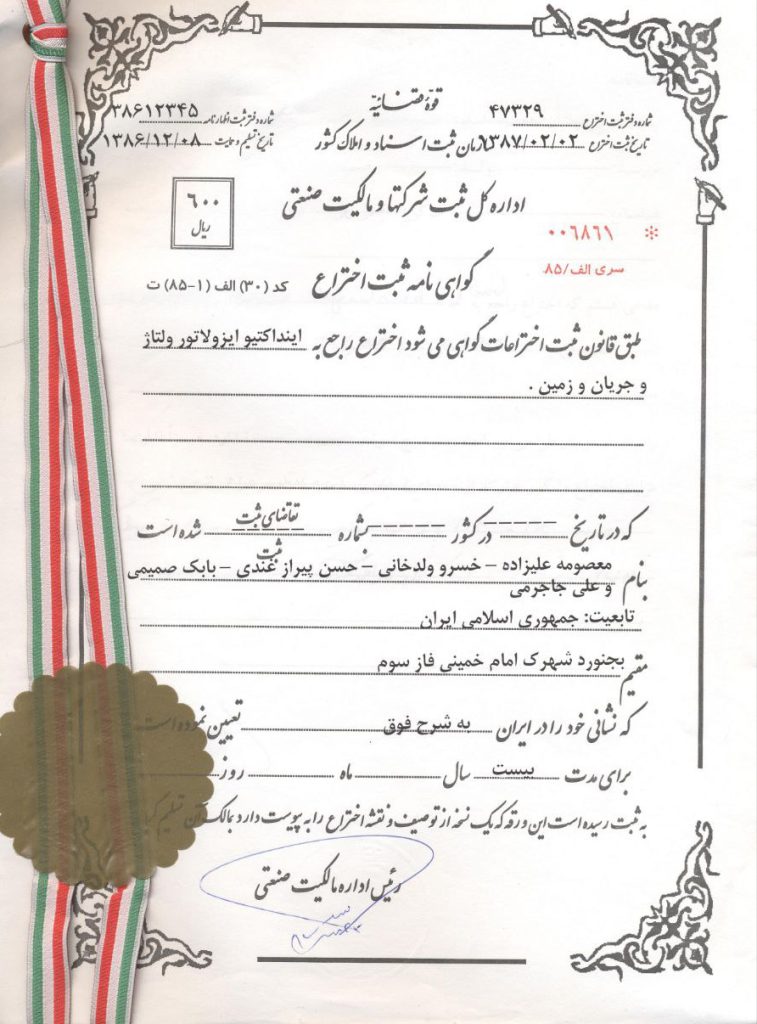 قوه قضائیه
شماره دفتر ثبت اختراع ۴۷۳۲۹
شماره دفتر ثبت اظهارنامه ۳۸۶۱۲۳۴۵
سازمان ثبت اسناد و املاک کشور
تاریخ ثبت اختراع ۱۳۸۷/۰۲/۰۲
تاریخ تسلیم و حمایت ۱۳۸۶/۱۲/۰۸
اداره کل ثبت شرکتها و مالکیت صنعتی
۶۰۰
ریال
۰۰۶۸۶۱
سری الف/۸۵
گواهی نامه ثبت اختراع
کد (۳۰) الف (۱-۸۵) ت
طبق قانون ثبت اختراعات گواهی می شود اختراع راجع به اینداکتیو ایزولاتور ولتاژ
و جریان و زمین .
که در تاریخ ------ در کشور ------ بشماره ------ تقاضای ثبت شده است
ثبت
بنام معصومه علیزاده – خسرو ولدخانی – حسن پیراز غندی – بابک صمیمی
و علی جاجرمی
تابعیت: جمهوری اسلامی ایران
مقیم بجنورد شهرک امام خمینی فاز سوم
که نشانی خود را در ایران به شرح فوق تعیین نموده است
برای مدت بیست سال ماه روز
به ثبت رسیده است این ورقه که یک نسخه از توصیف و نقشه اختراع را به پیوست دارد بمالک آن تسلیم
رئیس اداره مالکیت صنعتی